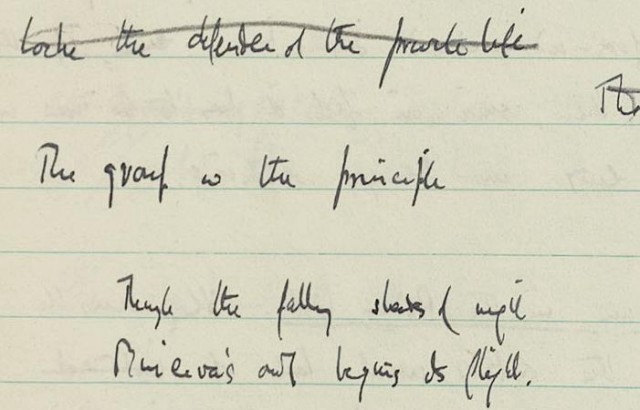 Locke the defender of the private life
The
The group the principle
Through the falling shades of night
Minerva's owl begins its flight.